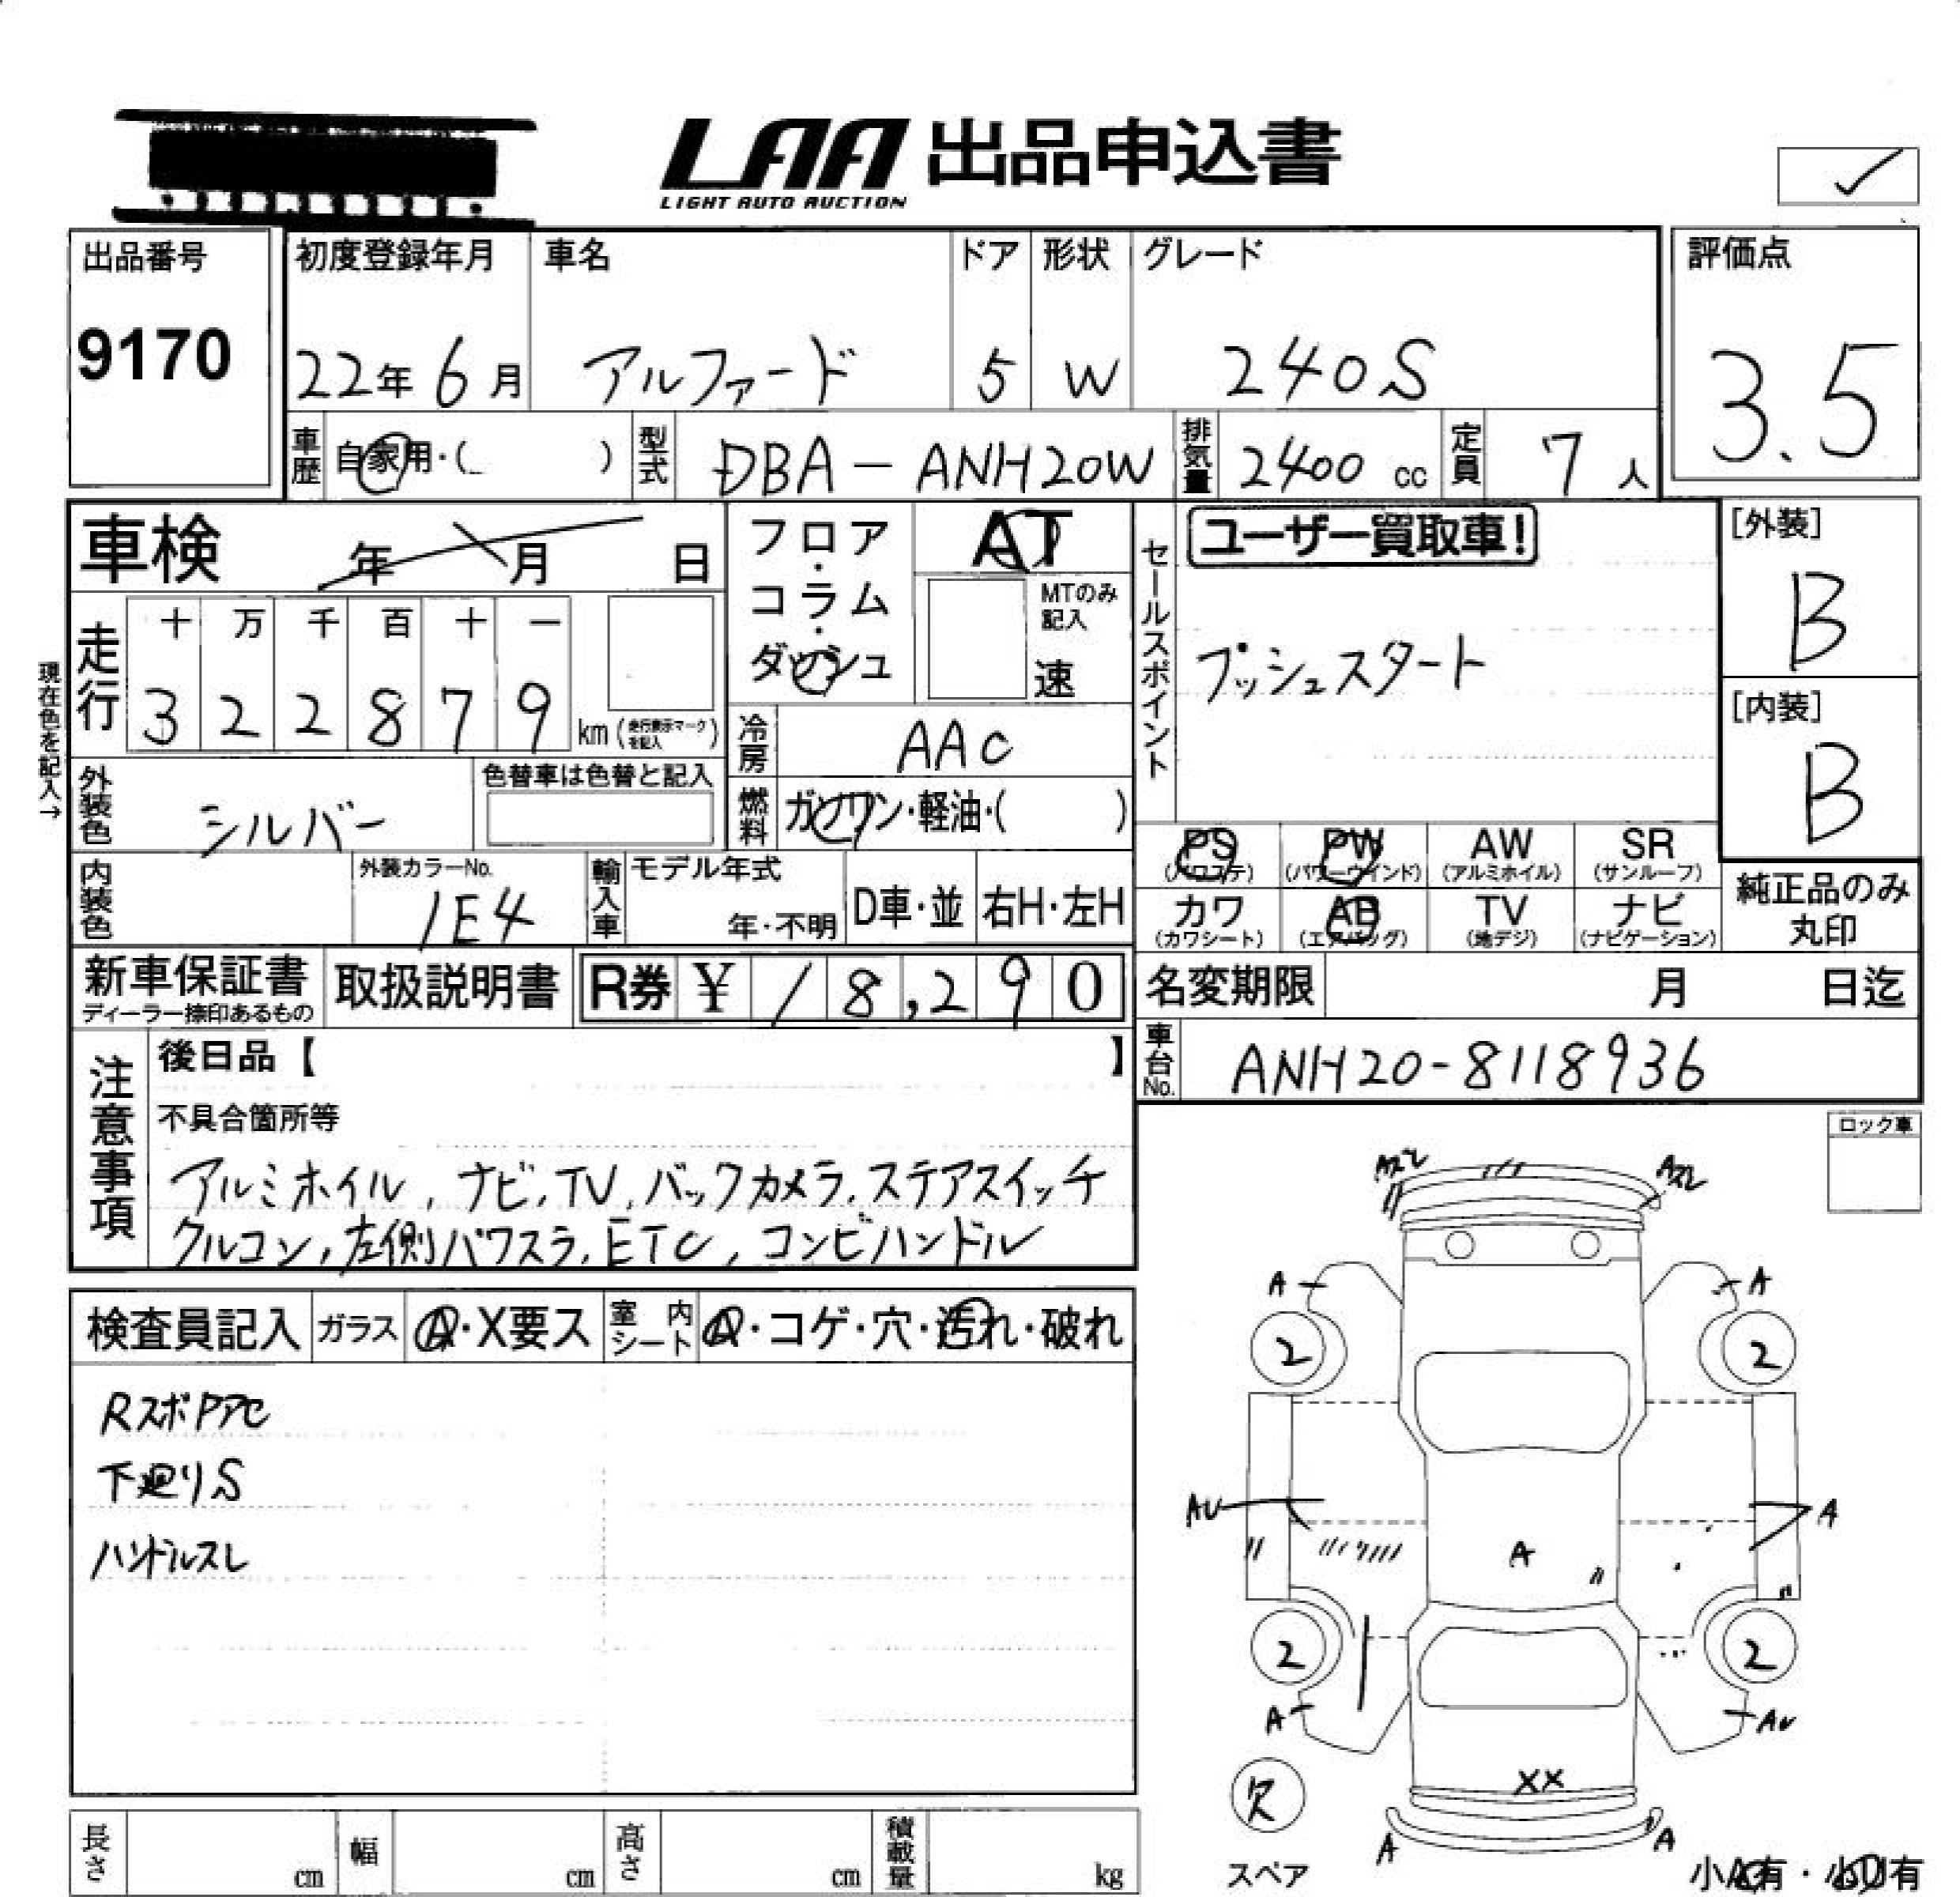 LAA 出品申込書
LIGHT AUTO AUCTION
出品番号
9170
初度登録年月
22年 6月
車名
アルファード
ドア
5
形状
W
グレード
240S
評価点
3.5
車歴 自家用・( )
型式 DBA-ANH20W
排気量 2400 cc
定員 7 人
車検 年 月 日
フロア・コラム・ダッシュ
AT
MTのみ記入
速
セールスポイント
ユーザー買取車!
プッシュスタート
[外装]
B
[内装]
B
現在色を記入→
走行
十 万 千 百 十 一
3 2 2 8 7 9 km (走行表示マークを記入)
冷房 AAC
燃料 ガソリン・軽油・( )
外装色 シルバー
色替車は色替と記入
内装色
外装カラーNo.
1E4
輸入車
モデル年式
年・不明
D車・並
右H・左H
PS (パワステ)
PW (パワーウインド)
AW (アルミホイル)
SR (サンルーフ)
カワ (カワシート)
AB (エアバッグ)
TV (地デジ)
ナビ (ナビゲーション)
純正品のみ丸印
新車保証書
ディーラー捺印あるもの
取扱説明書
R券 ¥ 18,290
名変期限 月 日迄
車台No. ANH20-8118936
注意事項
後日品【 】
不具合箇所等
アルミホイル, ナビ, TV, バックカメラ, ステアスイッチ
クルコン, 左側パワスラ, ETC, コンビハンドル
ロック車
検査員記入
ガラス A・X要ス
室内シート A・コゲ・穴・汚れ・破れ
下廻りS
ハンドルスレ
A A
2 2
AU A
A
2 2
A AU
XX
欠
スペア
A A
小A有・小U有
長さ cm
幅 cm
高さ cm
積載量 kg